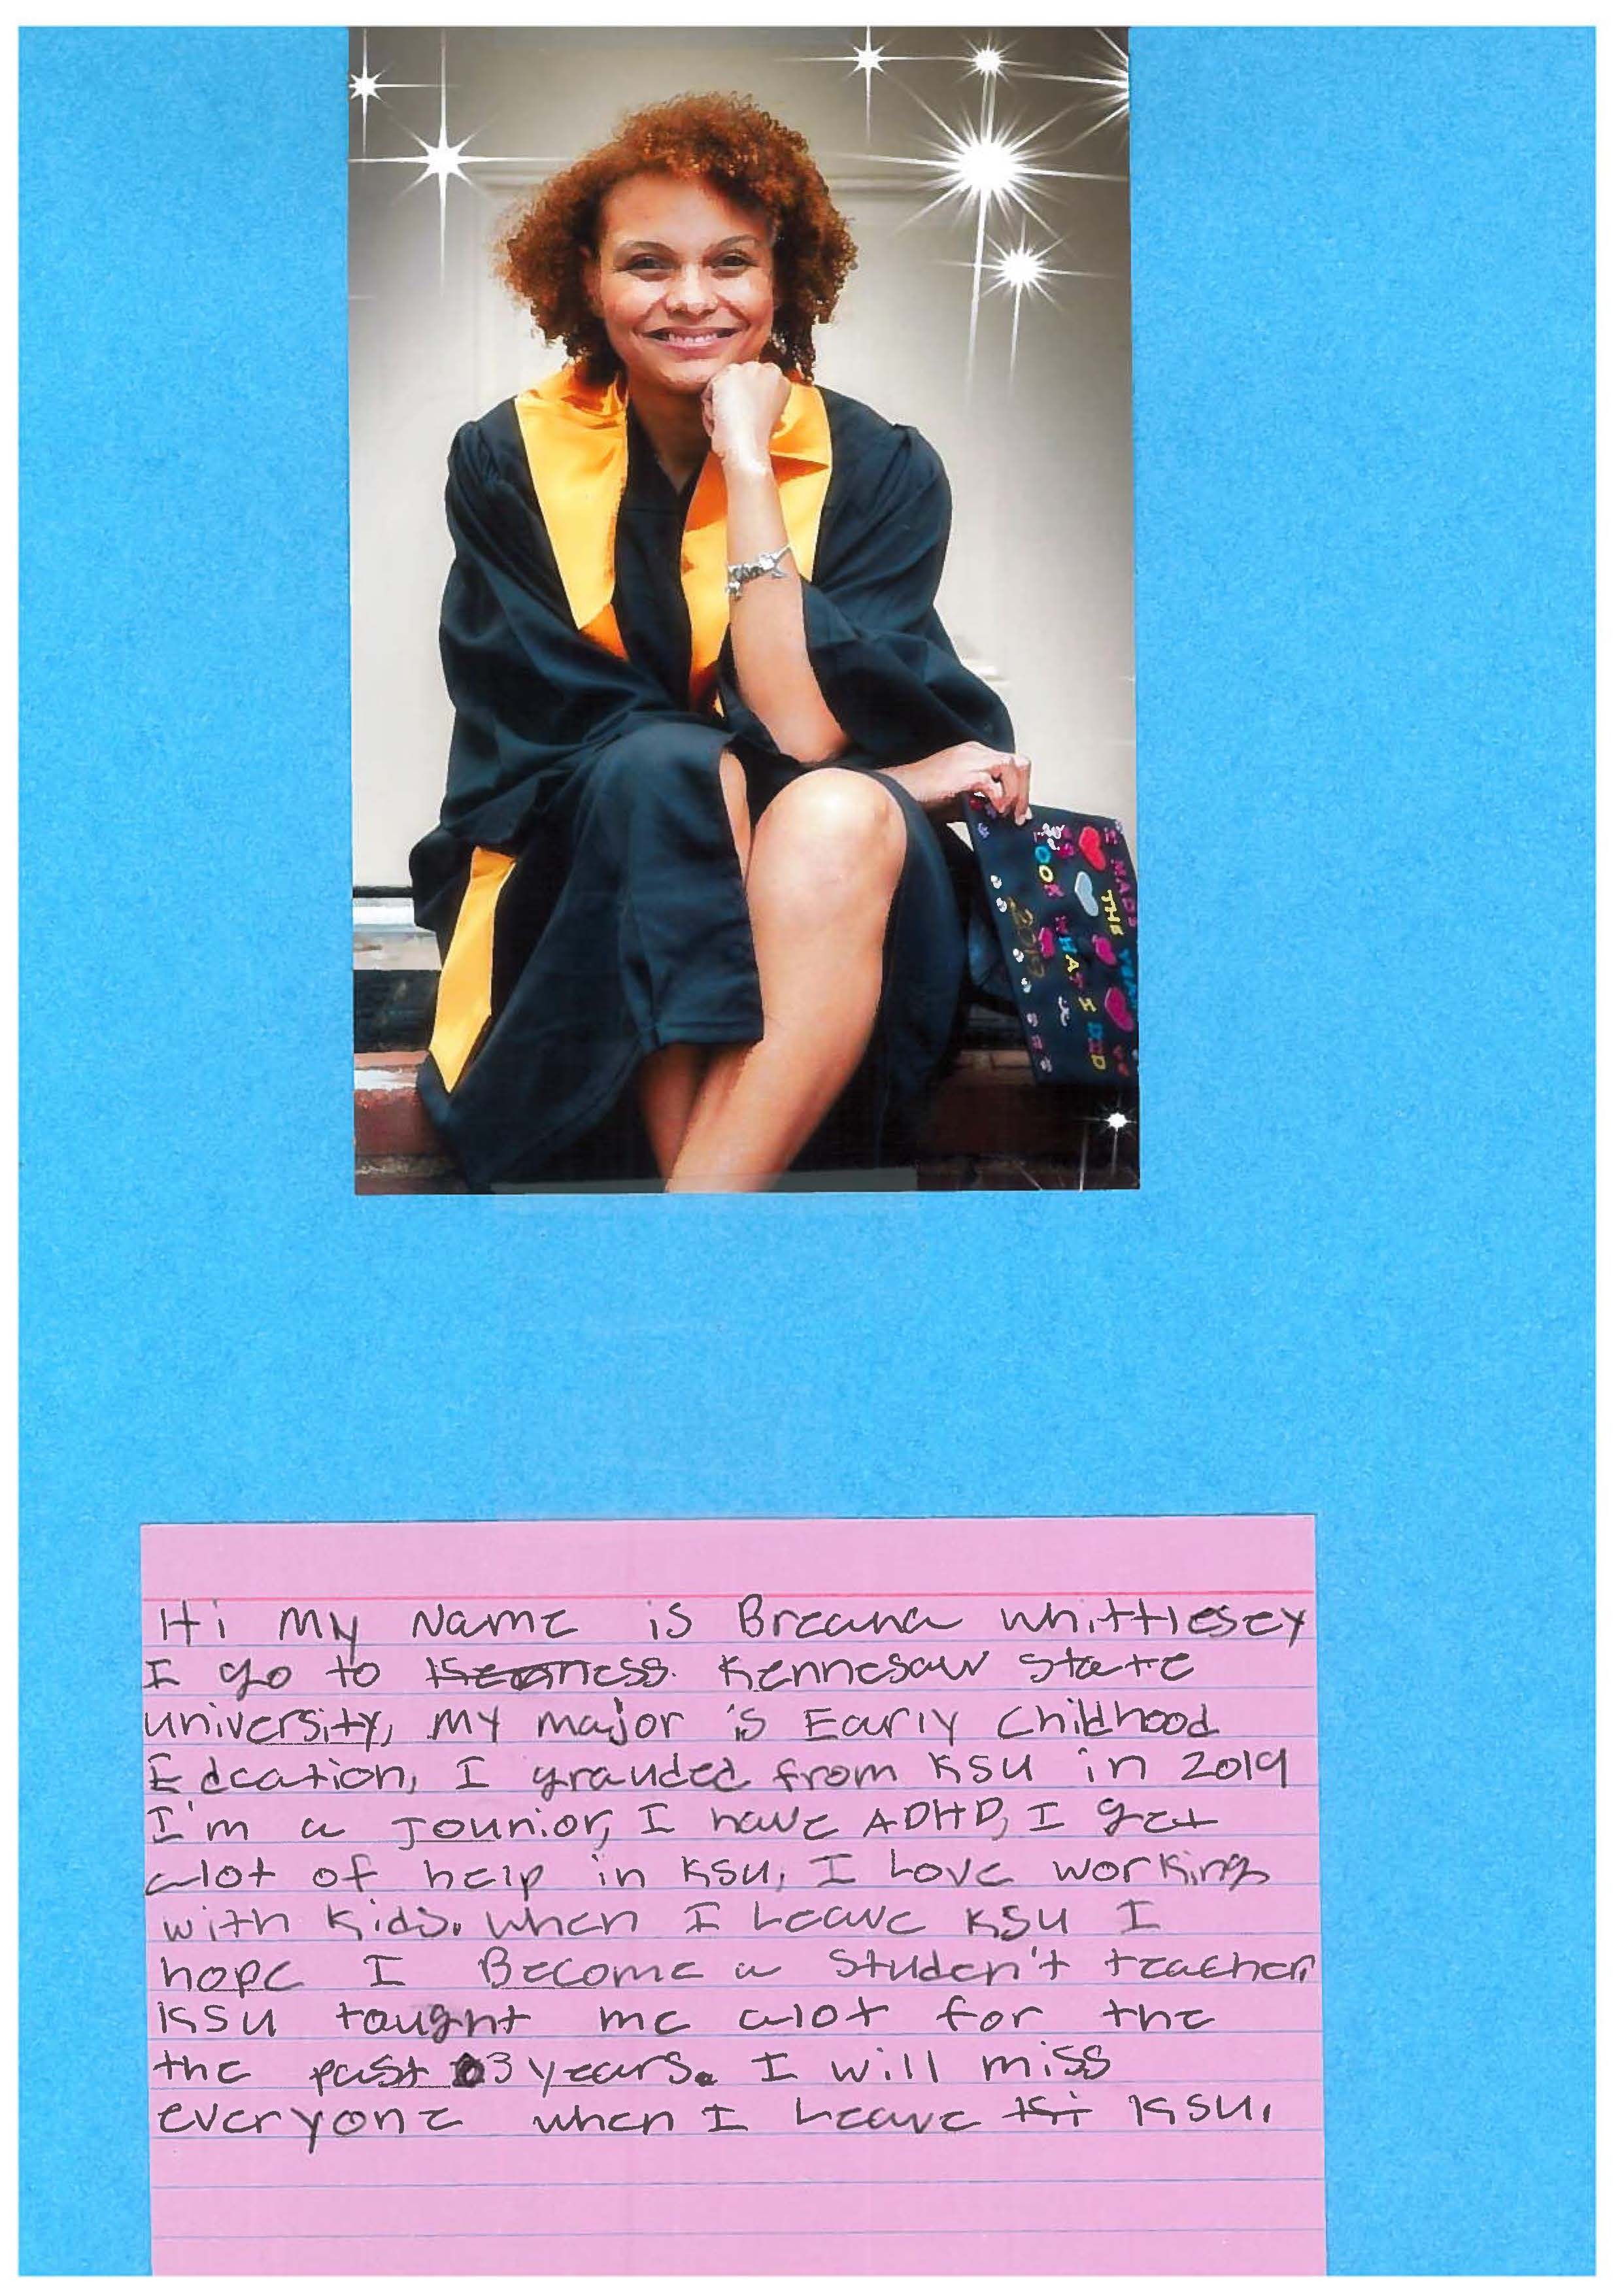 I MADE THE YEAR
LOOK WHAT I DID
2019
Hi My Name is Breana Whittlesey
I go to Kennesaw State
University, My major is Early Childhood
Edcation, I grauded from KSU in 2019
I'm a Jounior, I have ADHD, I get
alot of help in KSU, I Love working
with Kids. When I Leave KSU I
hope I Become a Studen't teacher,
KSU taught me alot for the
the past 3 years. I will miss
everyone when I Leave KSU.